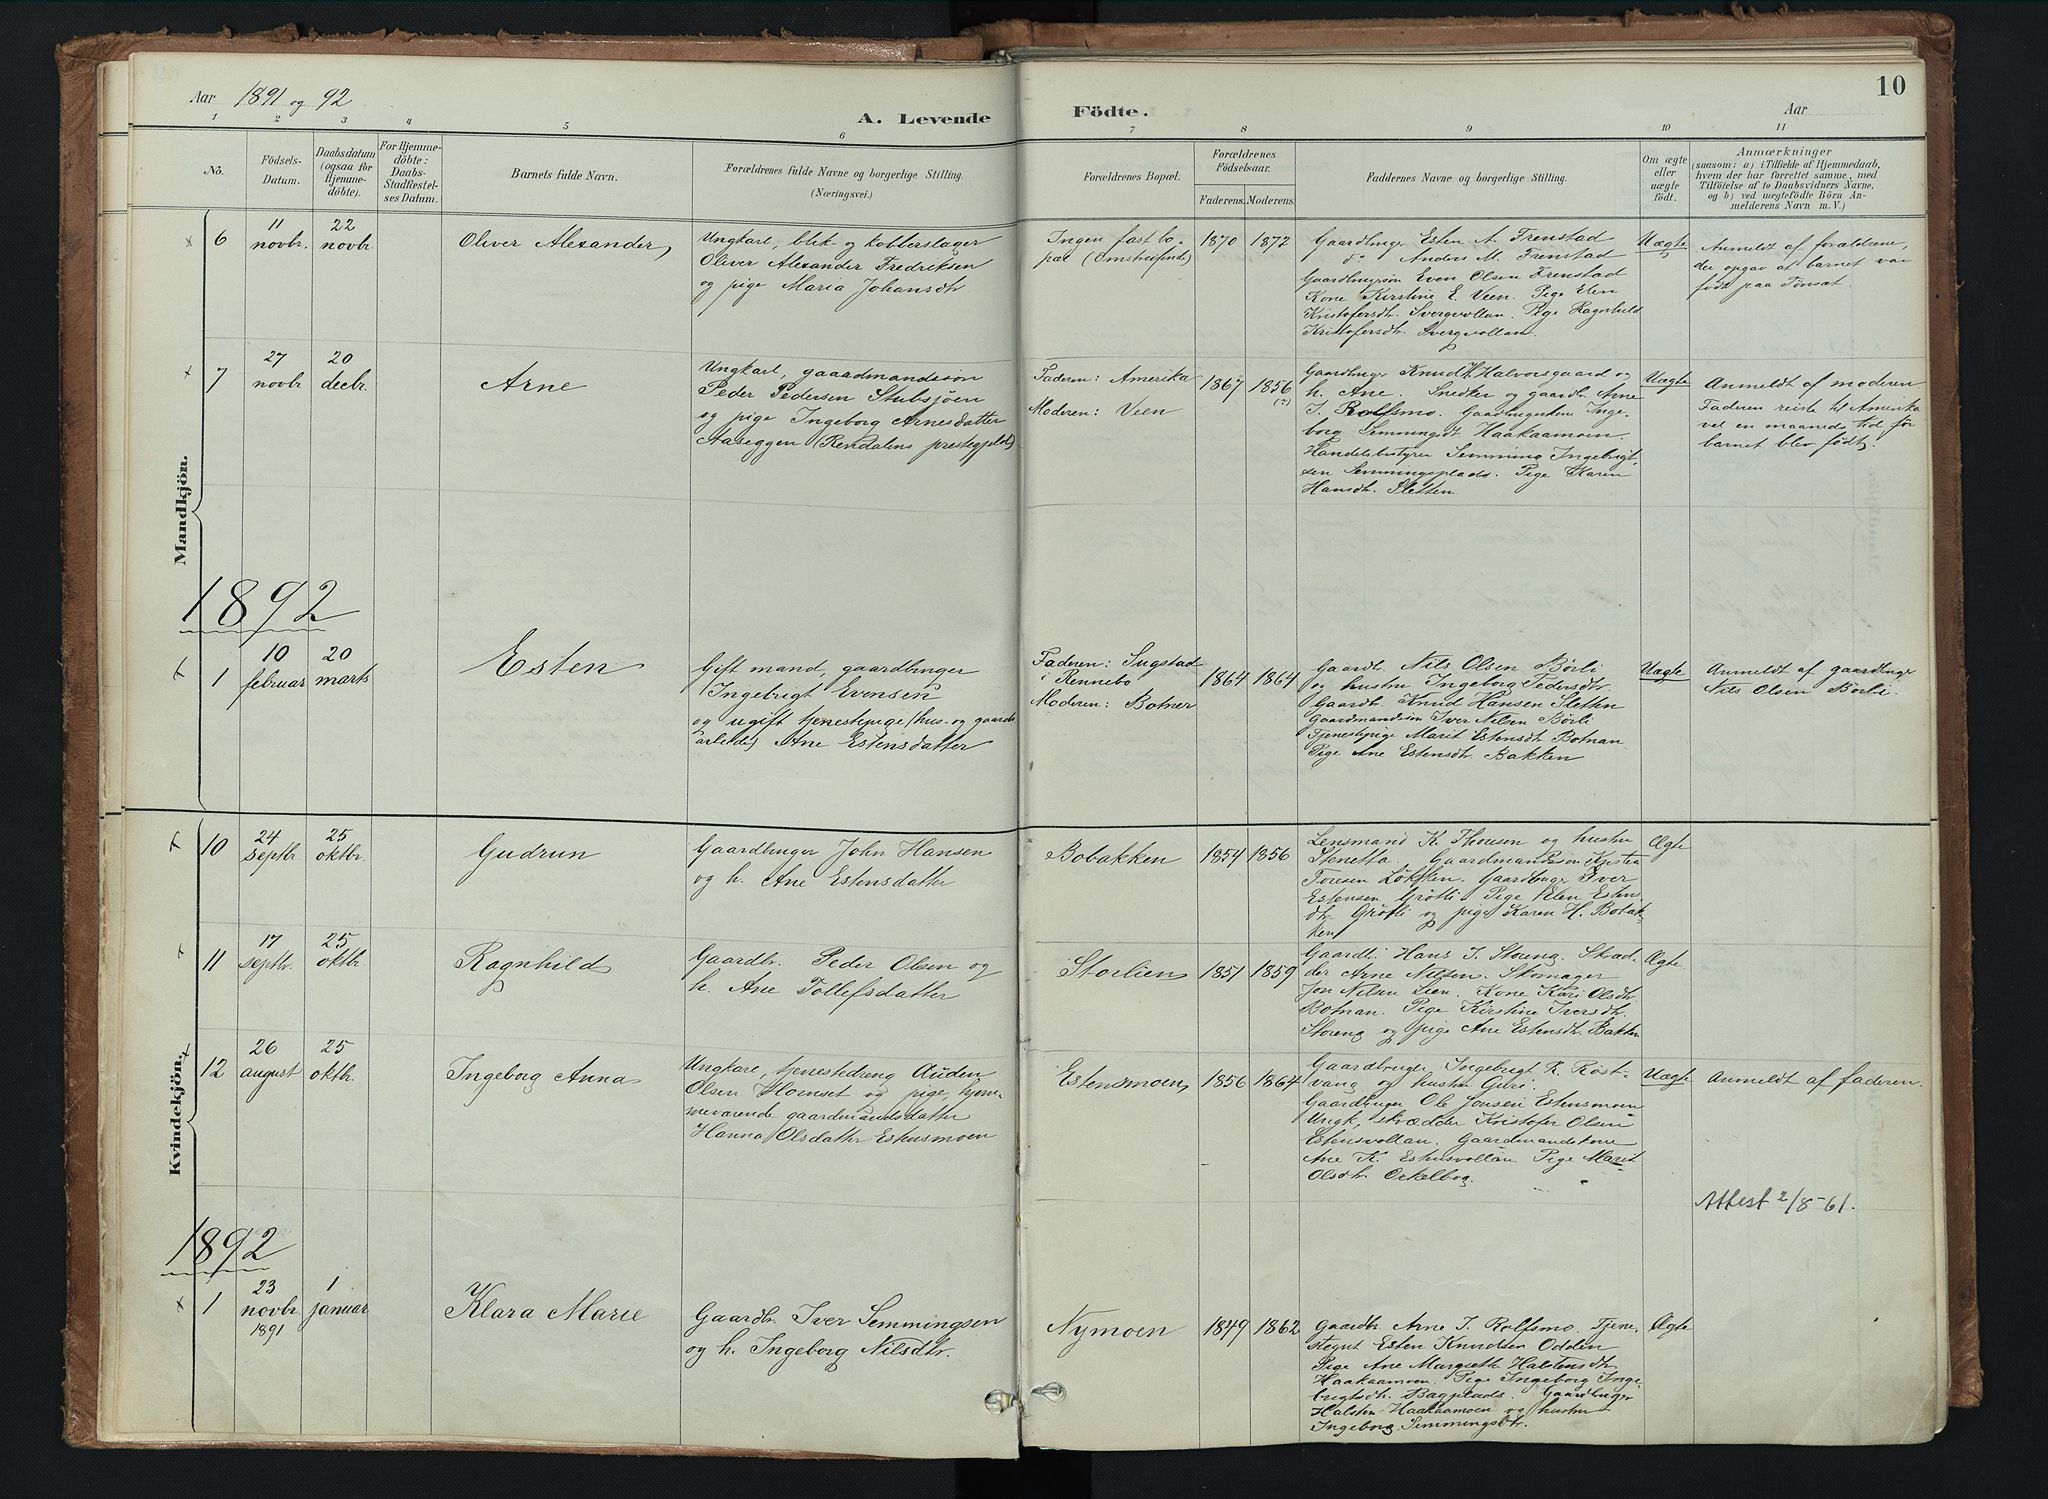 10
Aar 1891 og 92
Aar
A. Levende Födte.
1 2 3 4 5 6 7 8 9 10 11
No.
Födsels-
Datum.
Daabsdatum
(ogsaa för
Hjemme-
döbte).
For Hjemme-
döbte:
Daabs-
Stadfæstel-
ses Datum.
Barnets fulde Navn.
Forældrenes fulde Navne og borgerlige Stilling.
(Næringsvei.)
Forældrenes Bopæl.
Forældrenes
Födselsaar.
Faderens. Moderens.
Faddernes Navne og borgerlige Stilling.
Om ægte
eller
uægte
födt.
Anmærkninger
(saasom: a) i Tilfælde af Hjemmedaab,
hvem der har forrettet samme, med
Tilföielse af to Daabsvidners Navne,
og b) ved uægtefödte Börn An-
melderens Navn m. V.)
Mandkjön.
6
11
novbr.
22
novbr
Oliver Alexander
Ungkarl, blik- og kobberslager
Oliver Alexander Fredriksen
og pige Maria Johansdtr
Ingen fast bo-
pæl (Omstreifende)
1870 1872
Gaardbruger Esten A. Frenstad
do Anders M. Frenstad
Gaardbrugersøn Even Olsen Frenstad
Kone Kirstine E. Veen. Pige Elen
Kristofersdtr. Svergvollan. Pige Ragnhild
Kristofersdtr. Svergvollan.
Uægte
Anmeldt af forældrene,
der opgav at barnet var
født paa Tønset.
7
27
novbr
20
decbr.
Arne
Ungkarl, gaardmandssøn
Peder Pedersen Stubsjøen
og pige Ingeborg Arnesdatter
Aaseggen (Rendalens prestegjeld)
Faderen: Amerika
Moderen: Veen
1867 1856
(?)
Gaardbruger Knud K. Halvorsgaard og
h. Ane. Snedker og gaardbr. Arne
J. Rolfsmo. Gaardbrugerkone Inge-
borg Semmingsdt. Haakaamoen.
Handelsbestyrer Semming Ingebrigt-
sen Semmingsplads. Pige Karen
Hansdtr. Sletten.
Uægte
Anmeldt af moderen
Faderen reiste til Amerika
vel en maaneds tid før
barnet blev født.
1892
1
10
februar
20
marts
Esten
Gift mand, gaardbruger
Ingebrigt Evensen
og ugift tjenestepige (hus- og gaards
arbeide) Ane Estensdatter
Faderen: Sugstad
i Rennebo
Moderen: Botner
1864 1864
Gaardbr. Nils Olsen Børli
og hustru Ingeborg Pedersdtr
Gaardbr. Knud Hansen Sletten
Gaardmandssøn Iver Nilsen Børli
Tjenestepige Marit Estensdtr Botnan.
Pige Ane Estensdtr. Bakken
Uægte
Anmeldt af gaardbruger
Nils Olsen Børli.
Kvindekjön.
10
24
septbr.
25
oktbr.
Gudrun
Gaardbruger John Hansen
og h. Ane Estensdatter
Bobakken
1854 1856
Lensmand K. Thoesen og hustru
Stenetta. Gaardmandssøn Kristen
Toresen Løkken. Gaardbruger Iver
Estensen Grøtli Pige Elen Estens-
dtr. Grøtli og pige Karen H. Bobak-
ken
Ægte
11
17
septbr.
25
oktbr.
Ragnhild
Gaardbr. Peder Olsen og
h. Ane Tollefsdatter
Storlien
1851 1859
Gaardbr. Hans J. Storeng. Skræd-
der Arne Nilsen. Skomager
Jon Nilsen Lien. Kone Kari Olsdtr.
Botnan. Pige Kirstine Iversdtr.
Storeng og pige Ane Estensdtr. Bakken
Ægte
12
26
august
25
oktbr.
Ingeborg Anna
Ungkarl, tjenestedreng Auden
Olsen Hoenset og pige, hjem-
meværende gaardmandsdatter
Hanna Olsdatter Estensmoen
Estensmoen
1856 1864
Gaardbruger Ingebrigt R. Røst-
vang og hustru Guri.
Gaardbruger Ole Jonsen Estensmoen
Ungk, skrædder Kristofer Olsen
Estensvollan. Gaardmandskone
Ane K. Estensvollan. Pige Marit
Olsdtr Orkelbog.
Uægte
Anmeldt af faderen.
Attest 2/8-61.
1892
1
23
novbr.
1891
1
januar
Klara Marie
Gaardbr. Iver Semmingsen
og h. Ingeborg Nilsdtr.
Nymoen
1849 1862
Gaardbr. Arne J. Rolfsmo. Tjene-
stegut Esten Knudsen Odden
Pige Ane Margreth Halstensdtr
Haakaamoen. Pige Ingeborg Inge-
brigtsdtr. Bagplads. Gaardbruger
Halsten Haakaamoen og hustru
Ingeborg Semmingsdtr.
Ægte